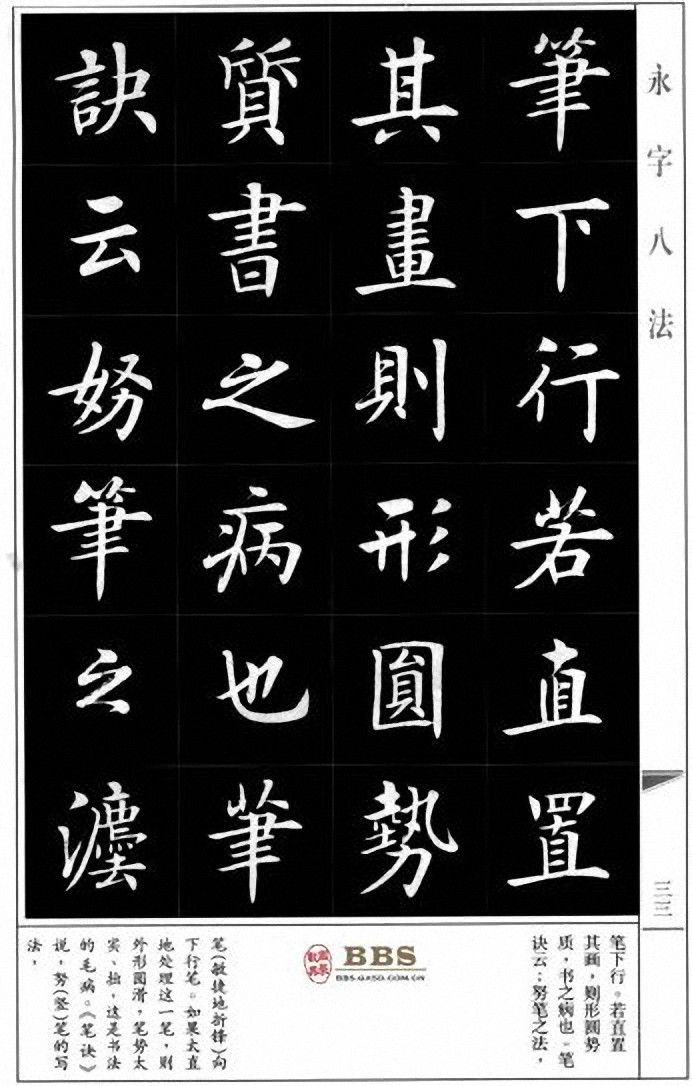 永字八法
筆下行若直置
其畫則形圓勢
質書之病也筆
訣云努筆之灋
三三
笔下行。若直置
其画，则形圆势
质，书之病也。笔
诀云：努笔之法，
BBS
BBS.GXSD.COM.CN
笔(敏捷地折锋)向
下行笔。如果太直
地处理这一笔，则
外形圆滑，笔势太
实、拙，这是书法
的毛病。《笔诀》
说，努(竖)笔的写
法，